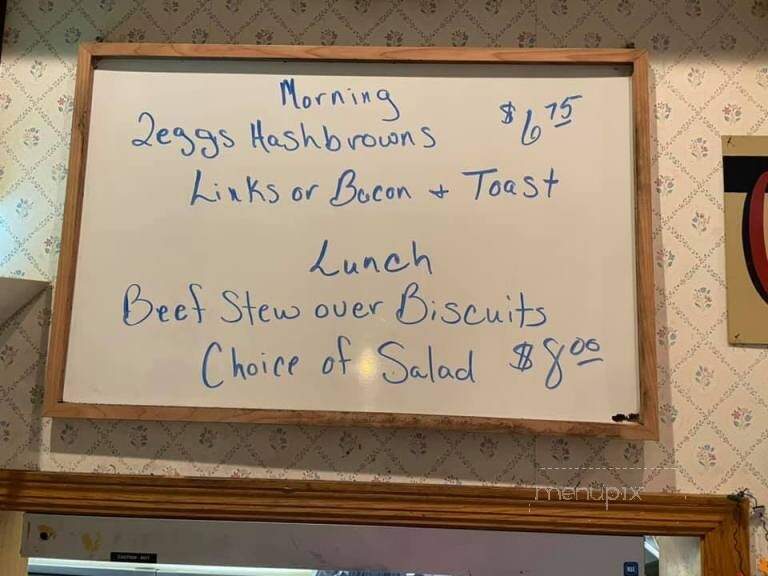 Morning
2eggs Hashbrowns $6.75
Links or Bacon + Toast
Lunch
Beef Stew over Biscuits
Choice of Salad $8.00
menupix
CAUTION - HOT